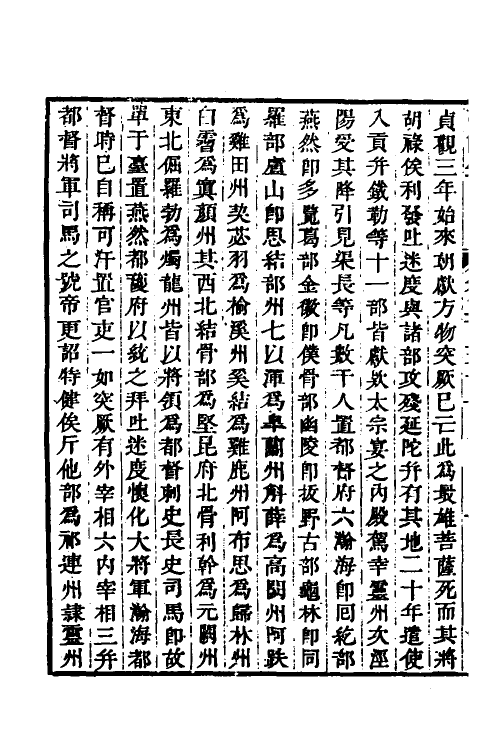 貞觀三年始來朝獻方物突厥巳亡此爲最雄菩薩死而其將
胡祿俟利發吐迷度與諸部攻殘延陀并有其地二十年遣使
入貢并鐵勒等十一部皆獻欵太宗宴之內殿駕幸靈州次涇
陽受其降引見渠長等凡數千人置都督府六瀚海卽囘紇部
燕然卽多覽葛部金徽卽僕骨部幽陵卽拔野古部龜林卽同
羅部盧山卽思結部州七以渾爲臯蘭州斛薛爲高闕州阿跌
爲雞田州契苾羽爲榆溪州奚結爲雞鹿州阿布思爲歸林州
白霫爲寘顔州其西北結骨部爲堅昆府北骨利幹爲元闕州
東北倔羅勃爲燭龍州皆以將領爲都督刺史長史司馬卽故
單于臺置燕然都護府以統之拜吐迷度懷化大將軍瀚海都
督時巳自稱可汗置官吏一如突厥有外宰相六內宰相三并
都督將軍司馬之號帝更詔特健俟斤他部爲祁連州隸靈州